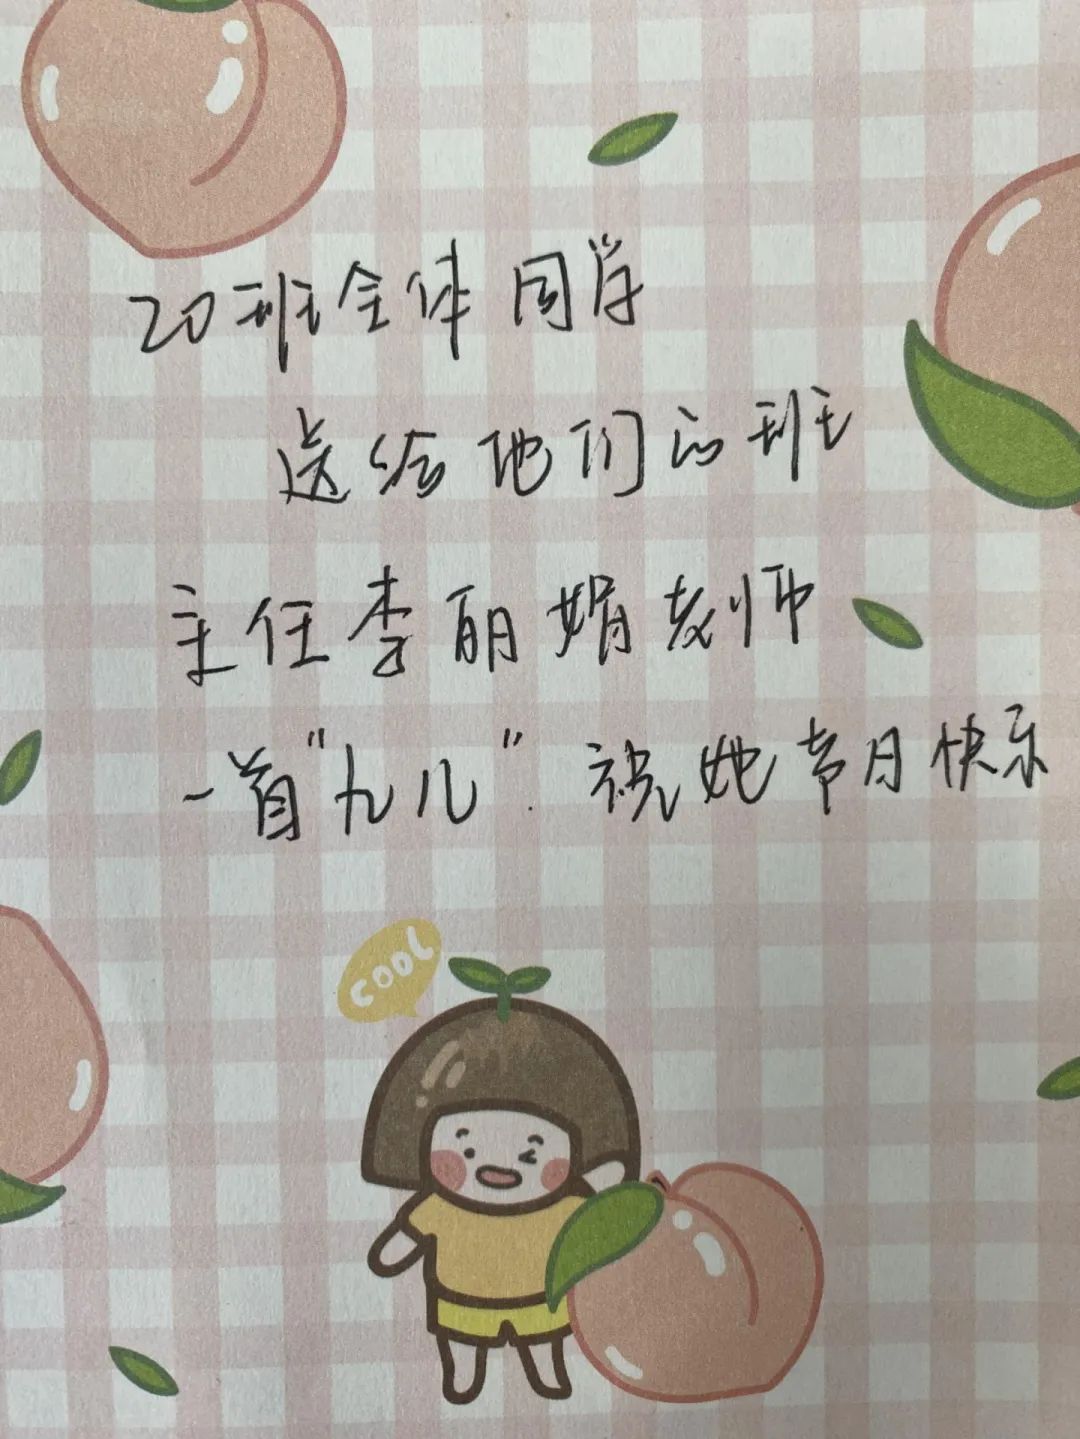 20班全体同学
送给他们的班
主任李丽娟老师
一首"九儿".祝她节日快乐
COOL